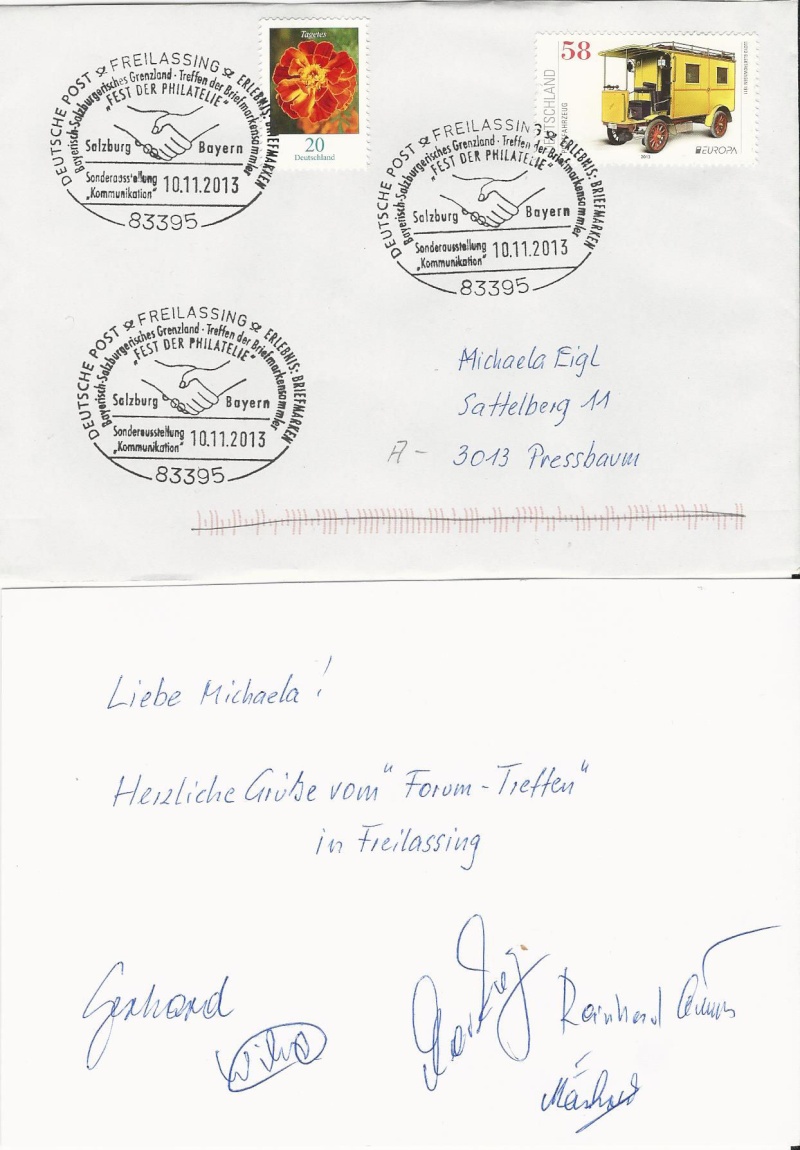 DEUTSCHE POST FREILASSING ERLEBNIS: BRIEFMARKEN
Bayerisch-Salzburgerisches Grenzland · Treffen der Briefmarkensammler
"FEST DER PHILATELIE"
Salzburg Bayern
Sonderausstellung
„Kommunikation" 10.11.2013
83395
Tagetes
20
Deutschland
58
DEUTSCHLAND
2013
EUROPA
DEUTSCHE POST FREILASSING ERLEBNIS: BRIEFMARKEN
Bayerisch-Salzburgerisches Grenzland · Treffen der Briefmarkensammler
"FEST DER PHILATELIE"
Salzburg Bayern
Sonderausstellung
„Kommunikation" 10.11.2013
83395
DEUTSCHE POST FREILASSING ERLEBNIS: BRIEFMARKEN
Bayerisch-Salzburgerisches Grenzland · Treffen der Briefmarkensammler
"FEST DER PHILATELIE"
Salzburg Bayern
Sonderausstellung
„Kommunikation" 10.11.2013
83395
Michaela Eigl
Sattelberg 11
A - 3013 Pressbaum
Liebe Michaela!
Herzliche Grüße vom "Forum-Treffen"
in Freilassing
Gerhard
Reinhard